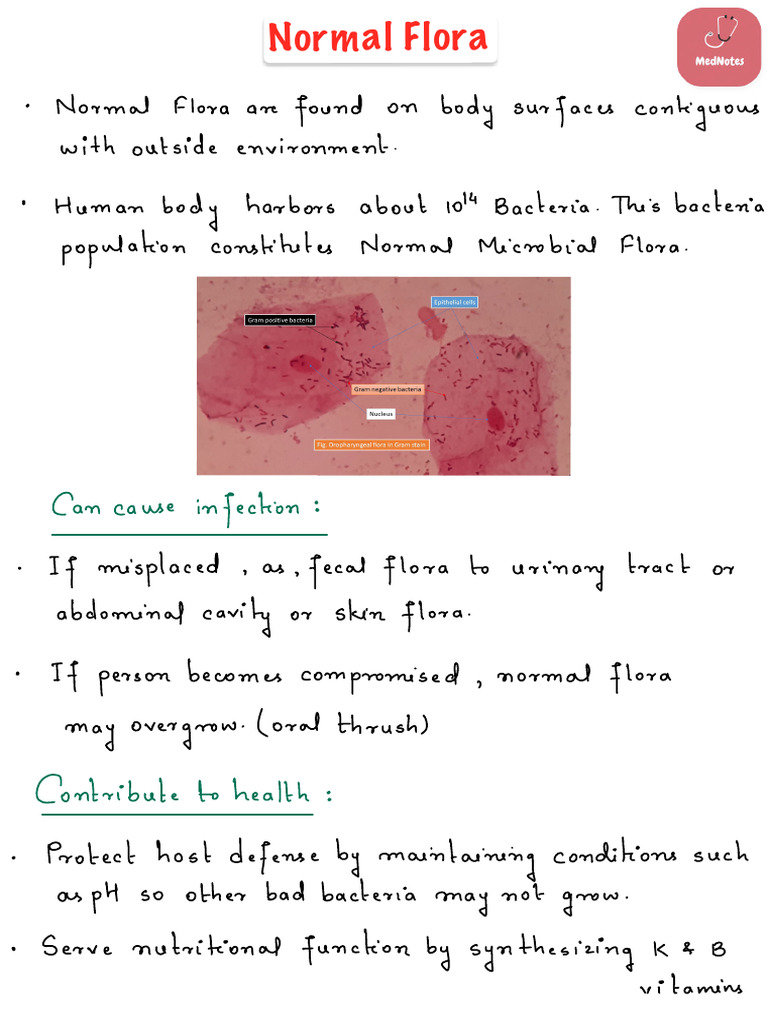 Normal Flora
MedNotes
• Normal Flora are found on body surfaces contiguous
with outside environment.
• Human body harbors about 10¹⁴ Bacteria. This bacteria
population constitutes Normal Microbial Flora.
Epithelial cells
Gram positive bacteria
Gram negative bacteria
Nucleus
Fig. Oropharyngeal flora in Gram stain
Can cause infection :
• If misplaced , as , fecal flora to urinary tract or
abdominal cavity or skin flora.
• If person becomes compromised , normal flora
may overgrow. (oral thrush)
Contribute to health :
• Protect host defense by maintaining conditions such
as pH so other bad bacteria may not grow.
• Serve nutritional function by synthesizing K & B
vitamins